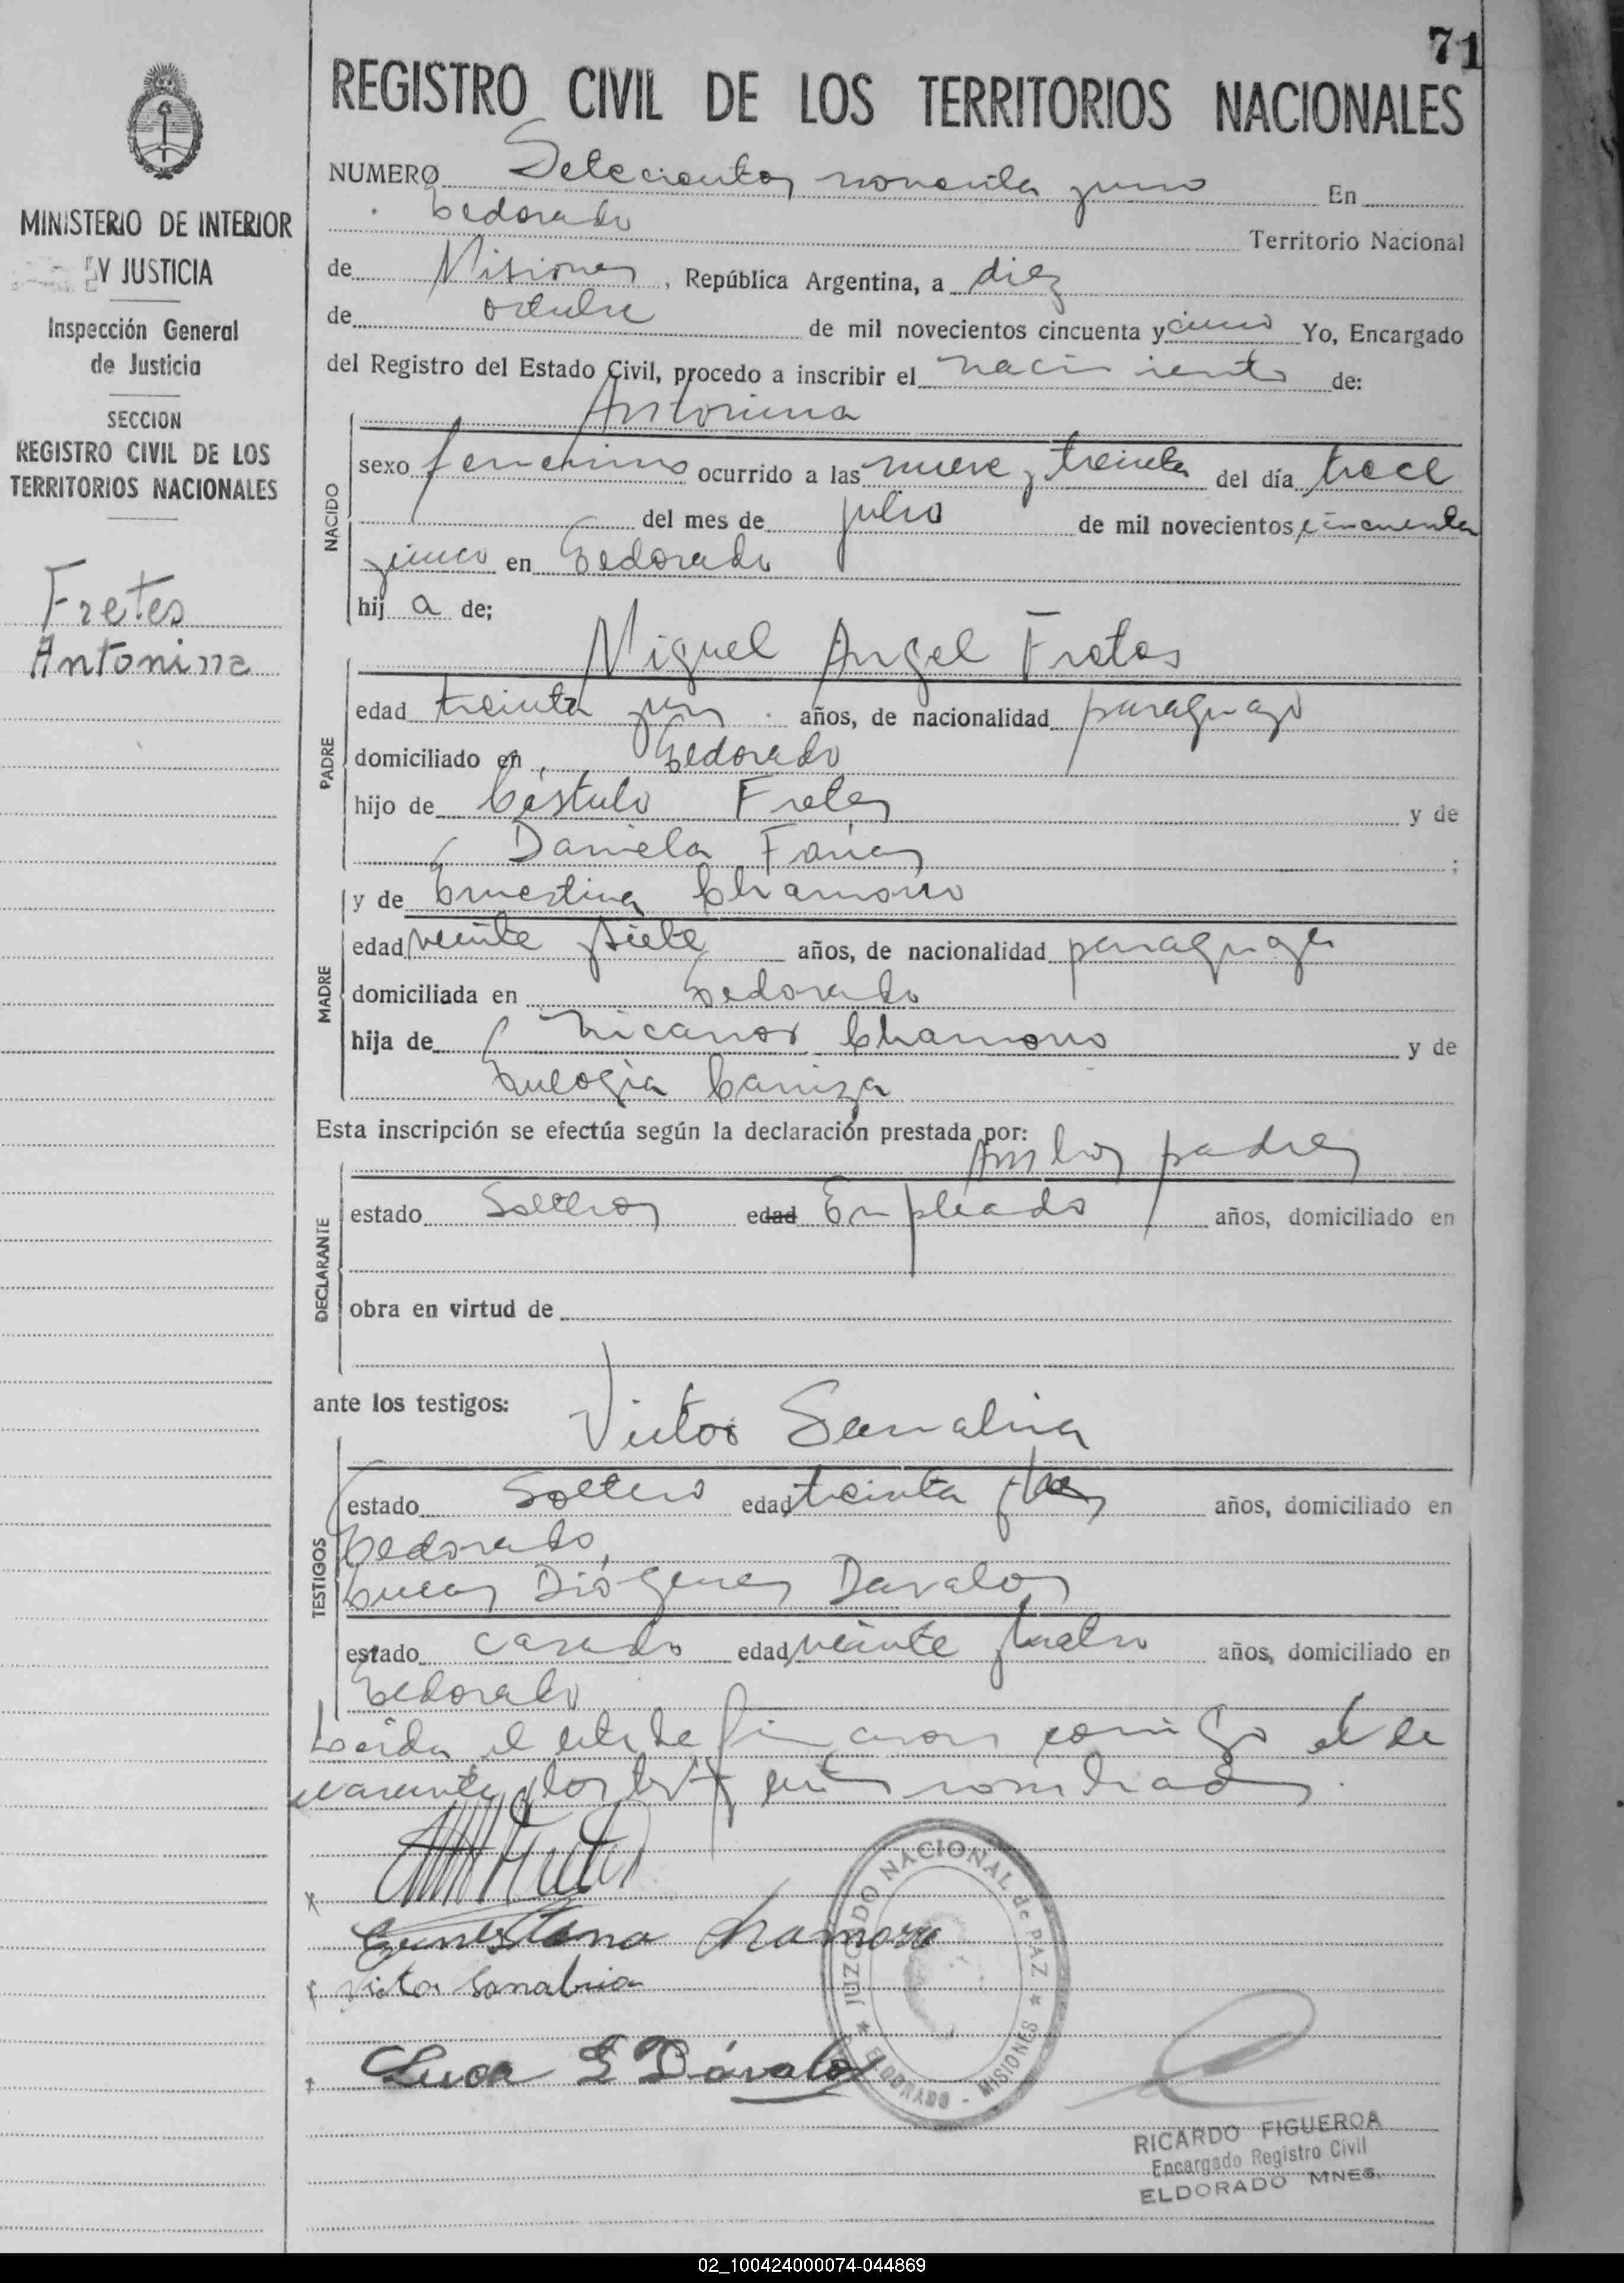 71
REGISTRO CIVIL DE LOS TERRITORIOS NACIONALES
MINISTERIO DE INTERIOR
Y JUSTICIA
Inspección General
de Justicia
SECCION
REGISTRO CIVIL DE LOS
TERRITORIOS NACIONALES
Fretes
Antonina
NUMERO Setecientos noventa y uno En
Eldorado Territorio Nacional
de Misiones, República Argentina, a diez
de octubre de mil novecientos cincuenta y cinco Yo, Encargado
del Registro del Estado Civil, procedo a inscribir el nacimiento de:
Antonina
NACIDO
sexo femenino ocurrido a las nueve y treinta del día trece
del mes de julio de mil novecientos cincuenta
y cinco en Eldorado
hij a de;
Miguel Angel Fretes
PADRE
edad treinta y un años, de nacionalidad paraguayo
domiciliado en Eldorado
hijo de Cástulo Fretes y de
Daniela Farías;
MADRE
y de Ernestina Chamorro
edad veinte y siete años, de nacionalidad paraguaya
domiciliada en Eldorado
hija de Nicanor Chamorro y de
Eulogia Caniza
Esta inscripción se efectúa según la declaración prestada por:
Ambos padres
DECLARANTE
estado Solteros edad Empleado años, domiciliado en
obra en virtud de
ante los testigos:
Victor Sanabria
TESTIGOS
estado Soltero edad treinta y tres años, domiciliado en
Eldorado
Lucas Diógenes Davalos
estado casado edad veinte y cuatro años, domiciliado en
Eldorado
Leída el acta la firmaron conmigo el de
clarante y los testigos nombrados.
Ernestina Chamorro
Victor Sanabria
Luca D Dávalos
JUZGADO NACIONAL de PAZ
ELDORADO - MISIONES
RICARDO FIGUEROA
Encargado Registro Civil
ELDORADO MNES.
02_100424000074-044869